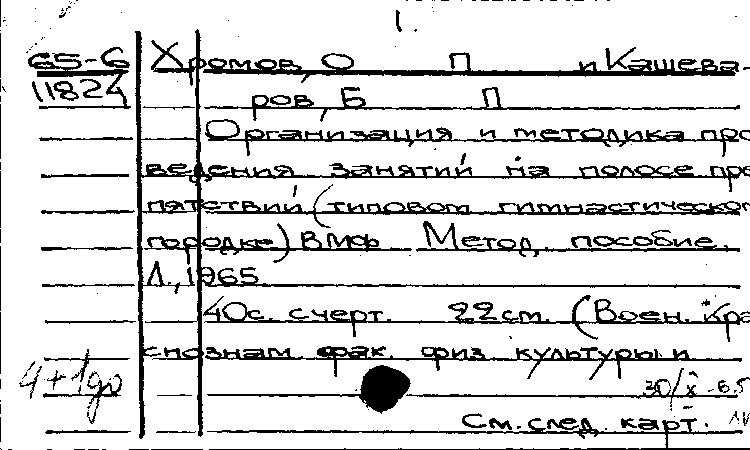 1.
65-6 Хромов, О П и Кашева-
11824 ров, Б П
Организация и методика про
ведения занятий на полосе пре
пятствий (типовом гимнастическом
городке) ВМФ Метод. пособие.
Л., 1965
40с. с черт. 22см. (Воен. Кра
снознам фак. физ культуры и
4+1до
30/x-65
См. след. карт.